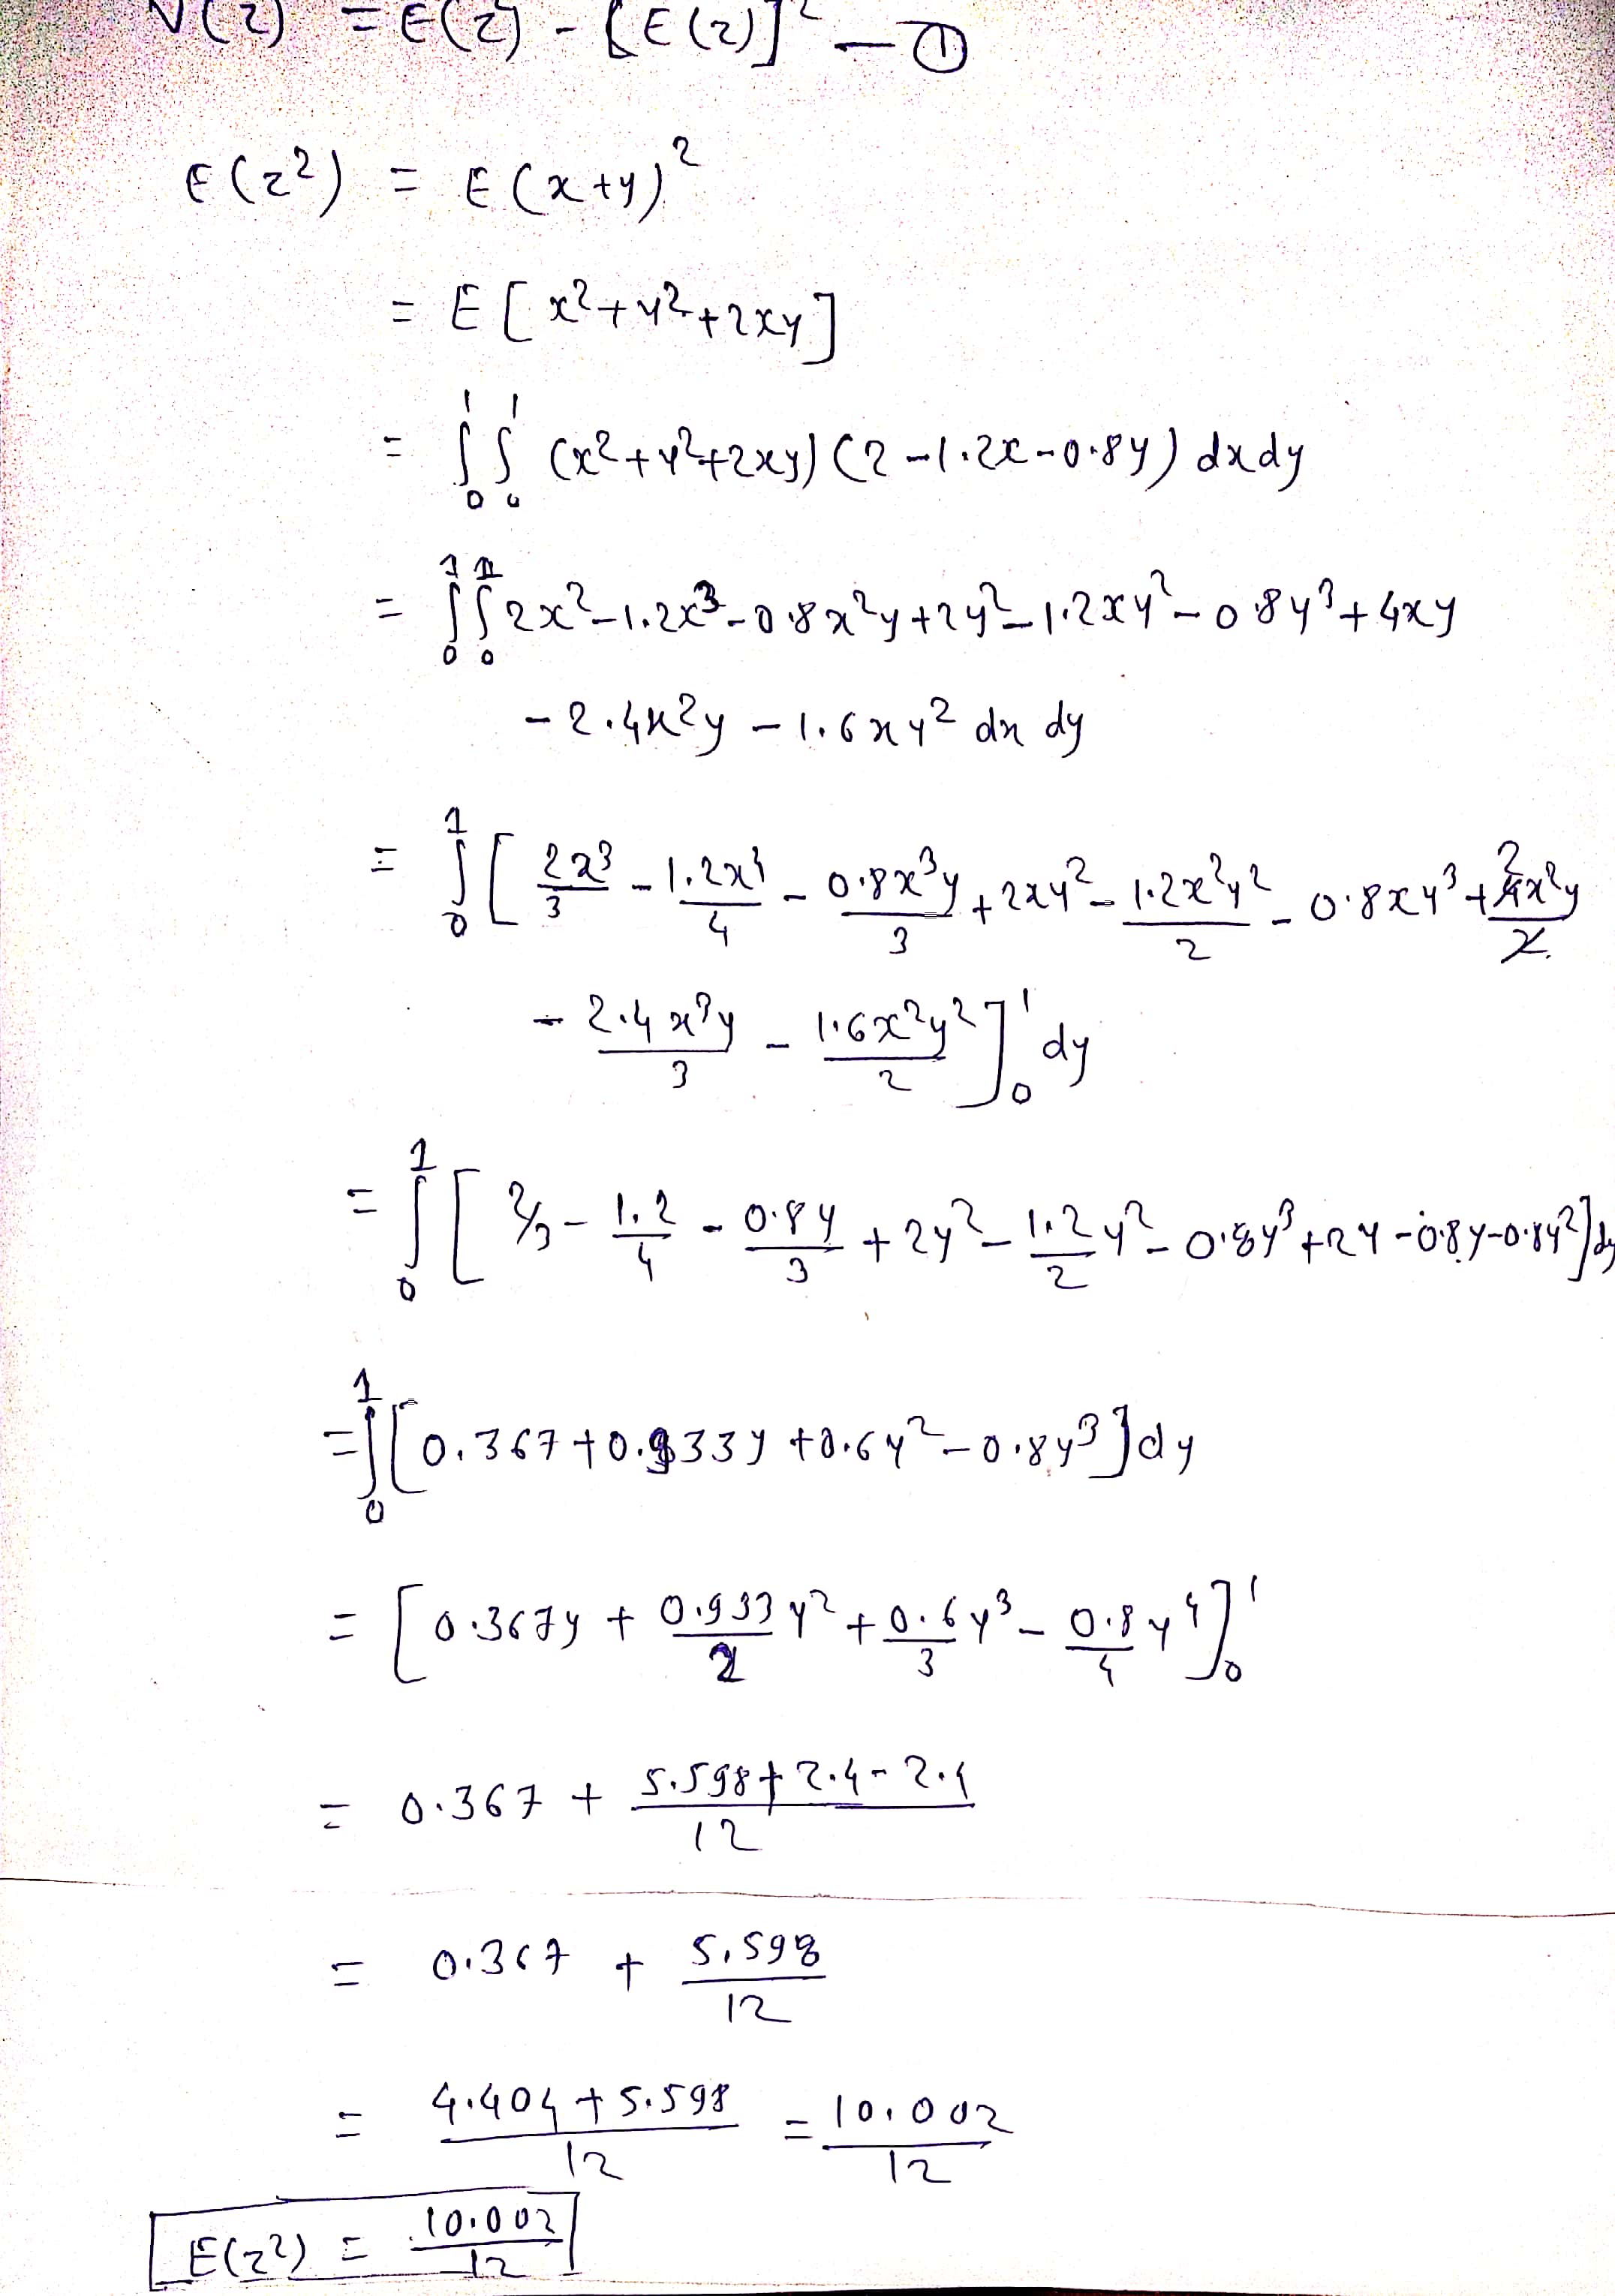 V(z) = E(z) - [E(z)]² — ①
E(z²) = E(x+y)²
= E[x²+y²+2xy]
= ∫₀¹∫₀¹ (x²+y²+2xy)(2-1.2x-0.8y) dxdy
= ∫₀¹∫₀¹ 2x²-1.2x³-0.8x²y+2y²-1.2xy²-0.8y³+4xy
-2.4x²y-1.6xy² dx dy
= ∫₀¹ [ 2x³/3 - 1.2x⁴/4 - 0.8x³y/3 + 2xy² - 1.2x²y²/2 - 0.8xy³ + 2x²y
- 2.4x³y/3 - 1.6x²y²/2 ]₀¹ dy
= ∫₀¹ [ 2/3 - 1.2/4 - 0.8y/3 + 2y² - 1.2/2 y² - 0.8y³ + 2y - 0.8y - 0.8y² ] dy
= ∫₀¹ [0.367+0.933y+0.6y²-0.8y³] dy
= [ 0.367y + 0.933/2 y² + 0.6/3 y³ - 0.8/4 y⁴ ]₀¹
= 0.367 + (5.598+2.4-2.4)/12
= 0.367 + 5.598/12
= (4.404+5.598)/12 = 10.002/12
E(z²) = 10.002/12